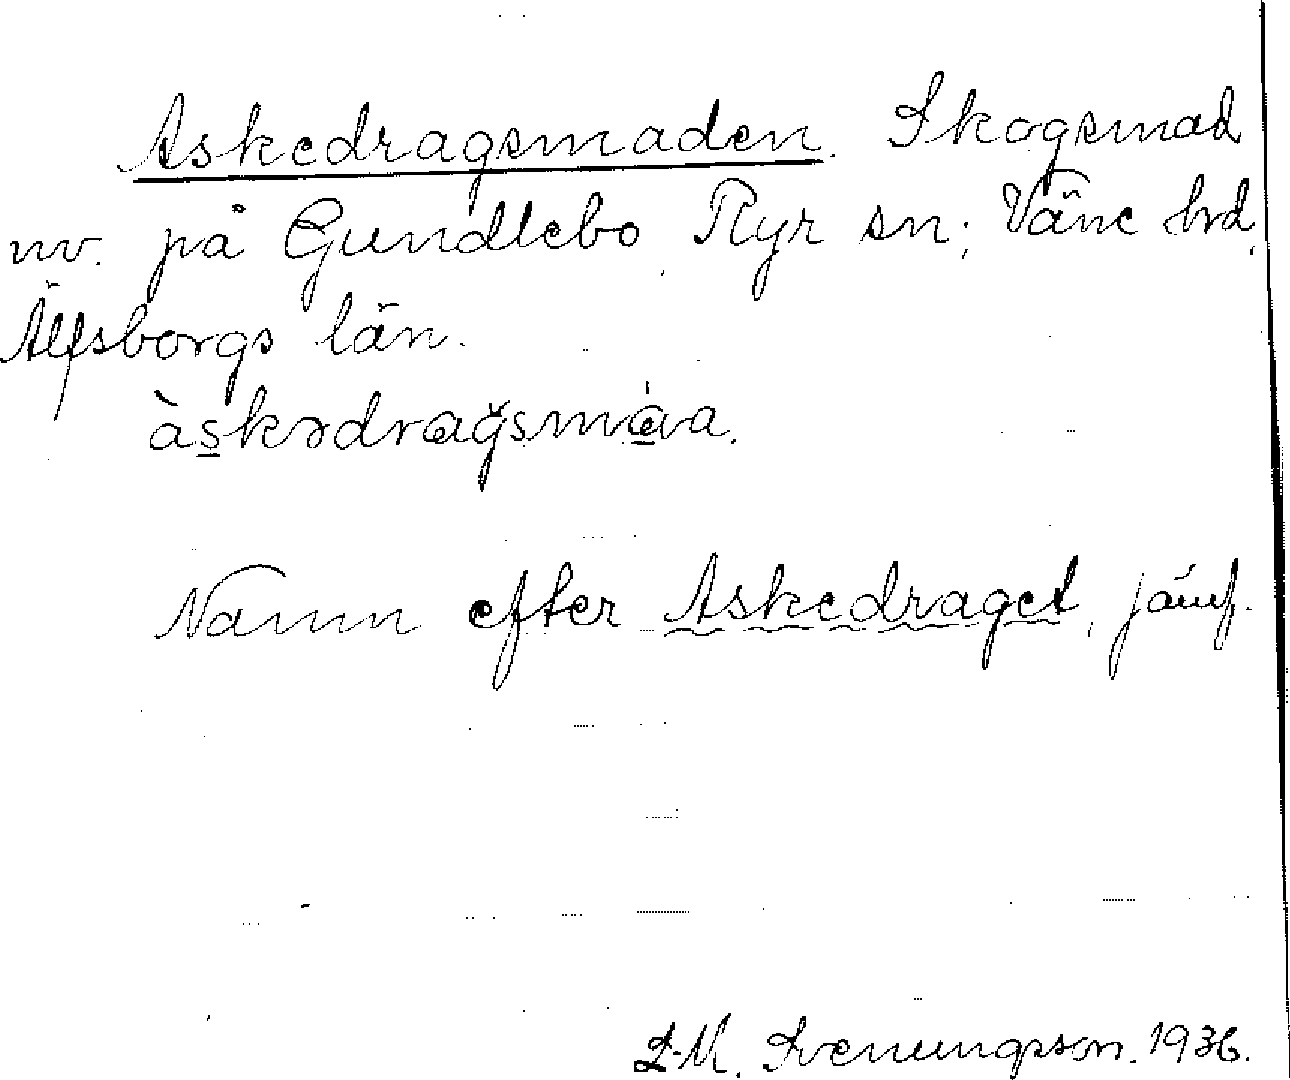 Askedragsmaden. Skogsmad
nv. på Gundlebo, Ryr sn; Väne hrd,
Älfsborgs län.
àskədragsmáva.
Namn efter Askedraget, jämf.
L-M. Svenungsson. 1936.